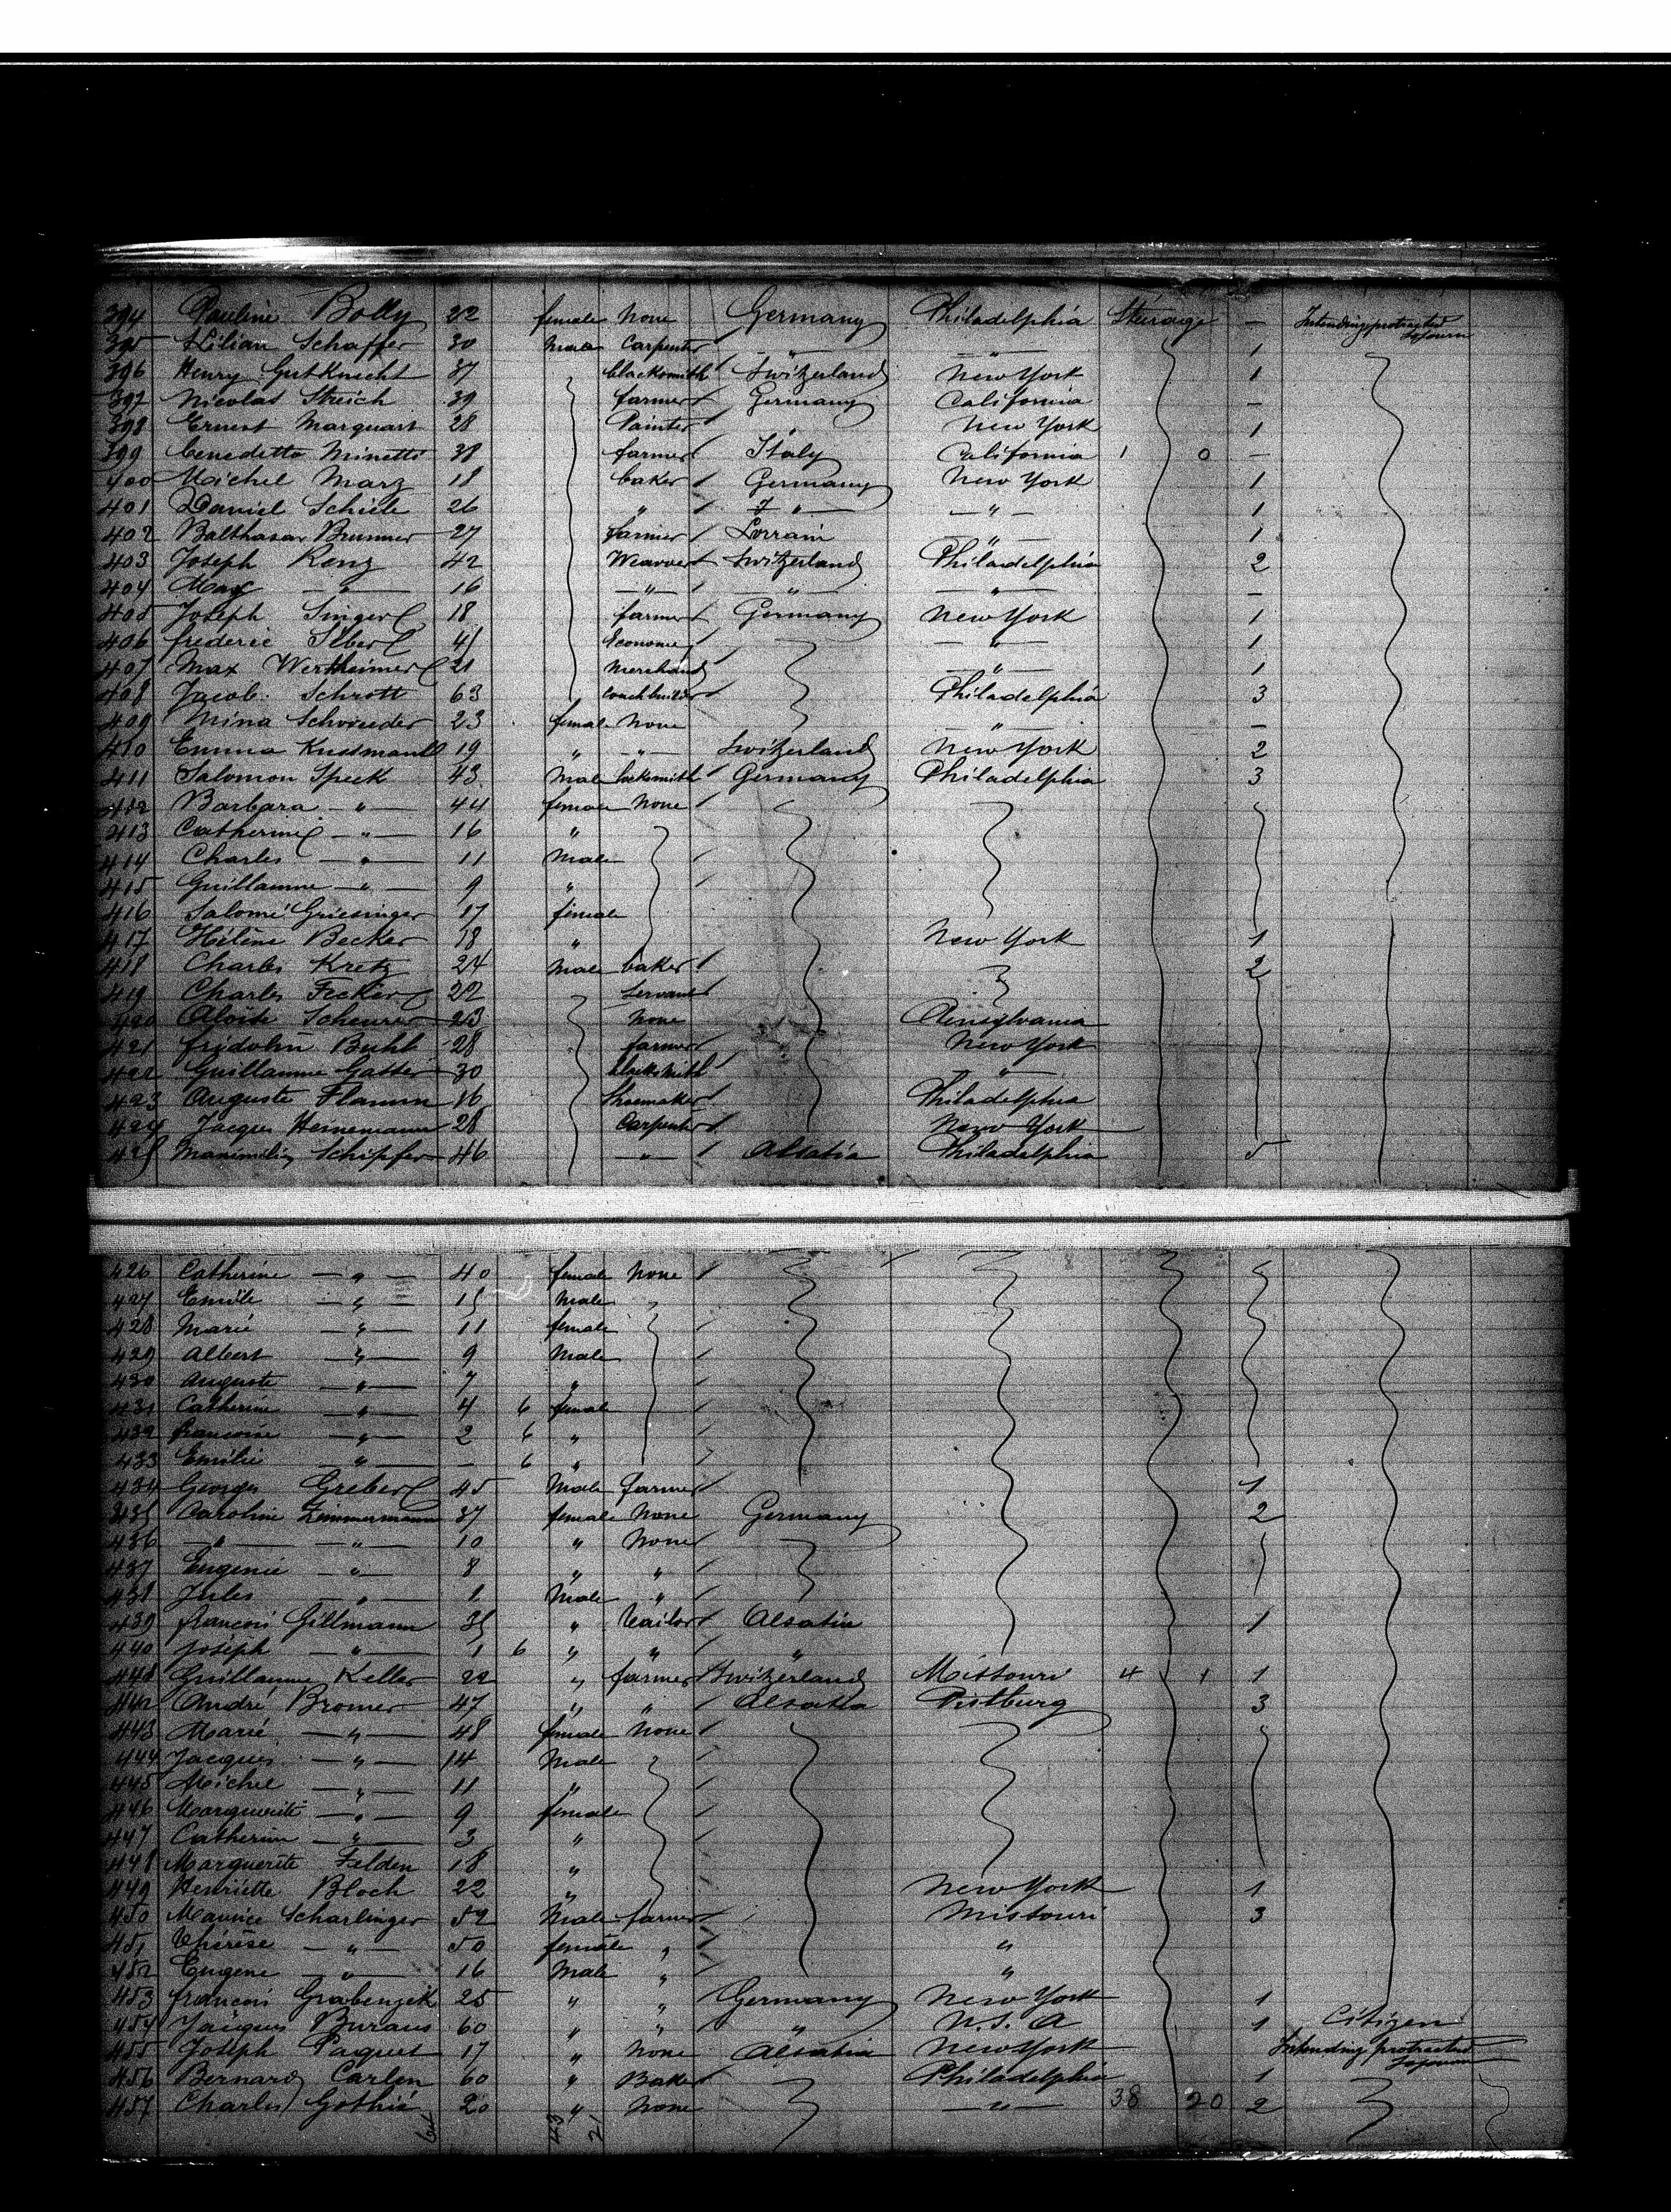 394 Pauline Bolly 22 female None Germany Philadelphia Stéerage — Intending protracted Sojourn
395 Kilian Schaffer 30 Male Carpenter — " — — " — 1
396 Henry Gutknecht 37 blacksmith Switzerland New York 1
397 Nicolas Streich 39 farmer Germany California —
398 Ernest Marquart 28 Painter " New York 1
399 benedetto Minetti 38 farmer Italy California 1 0 —
400 Michel Marz 18 baker Germany New York 1
401 Daniel Schiele 26 " — " — — " — 1
402 Balthasar Brunner 27 farmer Lorrain — " — 1
403 Joseph Renz 42 Weaver Switzerland Philadelphia 2
404 Max — " — 16 — " — — " — — " — —
405 Joseph Singer 18 farmer Germany New York 1
406 frederic Silber 41 Econome — " — 1
407 Max Wertheimer 21 Merchand — " — 1
408 Jacob Schrott 63 Coachbuilder Philadelphia 3
409 Mina Schroeder 23 female None — " — —
410 Emma Kussmaull 19 " — " — Switzerland New York 2
411 Salomon Speck 43 Male locksmith Germany Philadelphia 3
412 Barbara — " — 44 female None
413 Catherine — " — 16 "
414 Charles — " — 11 Male
415 Guillaume — " — 9 "
416 Salomé Griesinger 17 female
417 Hélène Becker 18 " New York 1
418 Charles Kretz 24 Male baker 2
419 Charles Fecker 22 Servant
420 Aloise Scheurer 23 None Pensylvania
421 fridolin Buhl 28 farmer New York
422 Guillaume Gasser 30 blacksmith — " —
423 Auguste Flamm 16 Shoemaker Philadelphia
424 Jacques Hernemann 28 Carpenter New York
425 Maximilien Schipfer 46 — " — Alsatia Philadelphia 5
426 Catherine — " — 40 female None
427 Emile — " — 15 Male
428 Marie — " — 11 female
429 Albert — " — 9 Male
430 Auguste — " — 7 "
431 Catherine — " — 4 6 female
432 francoise — " — 2 6 "
433 Emilie — " — — 6 "
434 Georges Greber 45 Male farmer 1
435 Caroline Zimmermann 37 female None Germany 2
436 — " — — " — 10 " None
437 Eugenie — " — 8 " "
438 Jules " 1 Male "
439 francois Gillmann 35 " tailor Alsatia 1
440 Joseph — " — 1 6 " " "
441 Guillaume Keller 22 " farmer Switzerland Missouri 4 1 1
442 André Bromer 47 " " Alsatia Pittburg 3
443 Marie — " — 48 female None
444 Jacques — " — 14 Male
445 Michel — " — 11 "
446 Marguerite — " — 9 female
447 Catherine — " — 3 "
448 Marguerite Felden 18 "
449 Henriette Bloch 22 " New York 1
450 Maurice Scharlinger 52 Male farmer Missouri 3
451 thérèse — " — 50 female " "
452 Eugene " 16 Male " "
453 francois Grabenzik 25 " " Germany New York 1
454 Jacques Buraus 60 " " " U.S.A 1 Citizen
455 Joseph Paquet 17 " None Alsatia New York Intending protracted Sojourn
456 Bernard Carlen 60 " Baker Philadelphia 1
457 Charles Gothié 20 " None — " — 38 20 2
43 21